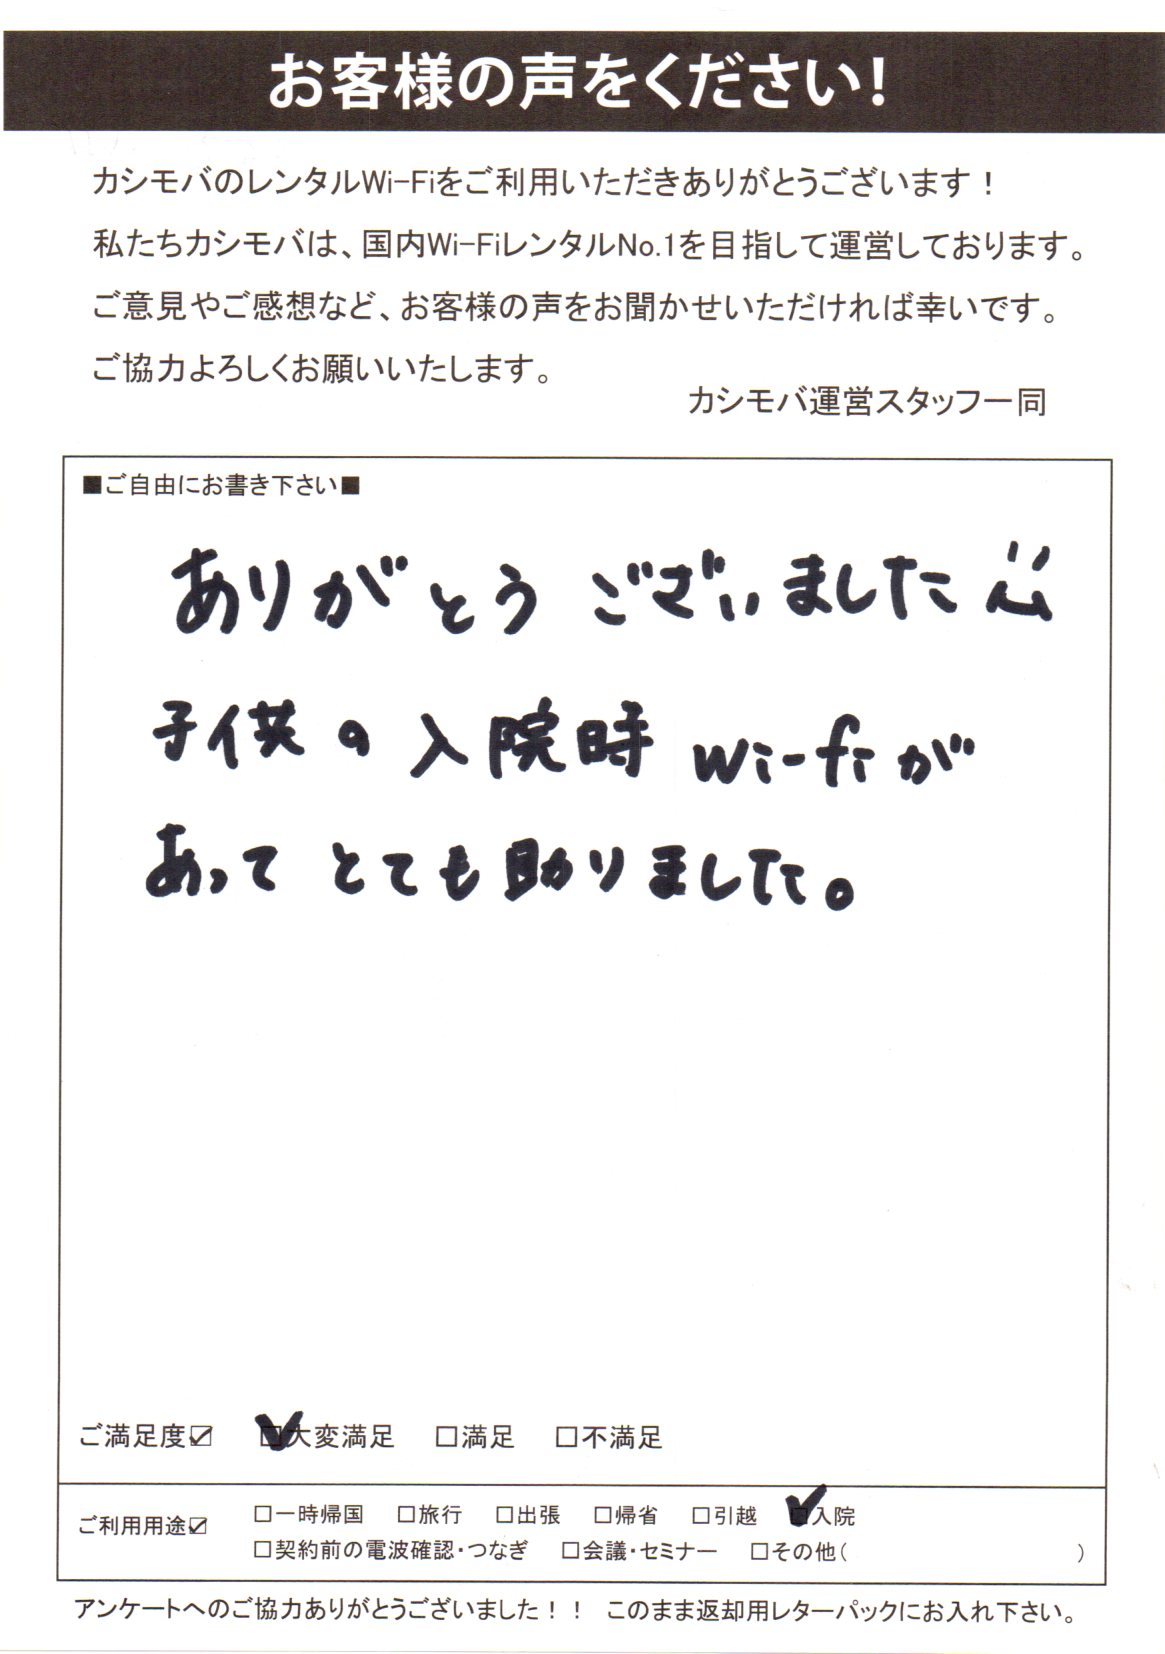 お客様の声をください!
カシモバのレンタルWi-Fiをご利用いただきありがとうございます！
私たちカシモバは、国内Wi-FiレンタルNo.1を目指して運営しております。
ご意見やご感想など、お客様の声をお聞かせいただければ幸いです。
ご協力よろしくお願いいたします。
カシモバ運営スタッフ一同
■ご自由にお書き下さい■
ありがとうございました
子供の入院時 wi-fiが
あって とても助りました。
ご満足度☑ ☑大変満足 □満足 □不満足
ご利用用途☑ □一時帰国 □旅行 □出張 □帰省 □引越 ☑入院
□契約前の電波確認・つなぎ □会議・セミナー □その他( )
アンケートへのご協力ありがとうございました！！ このまま返却用レターパックにお入れ下さい。